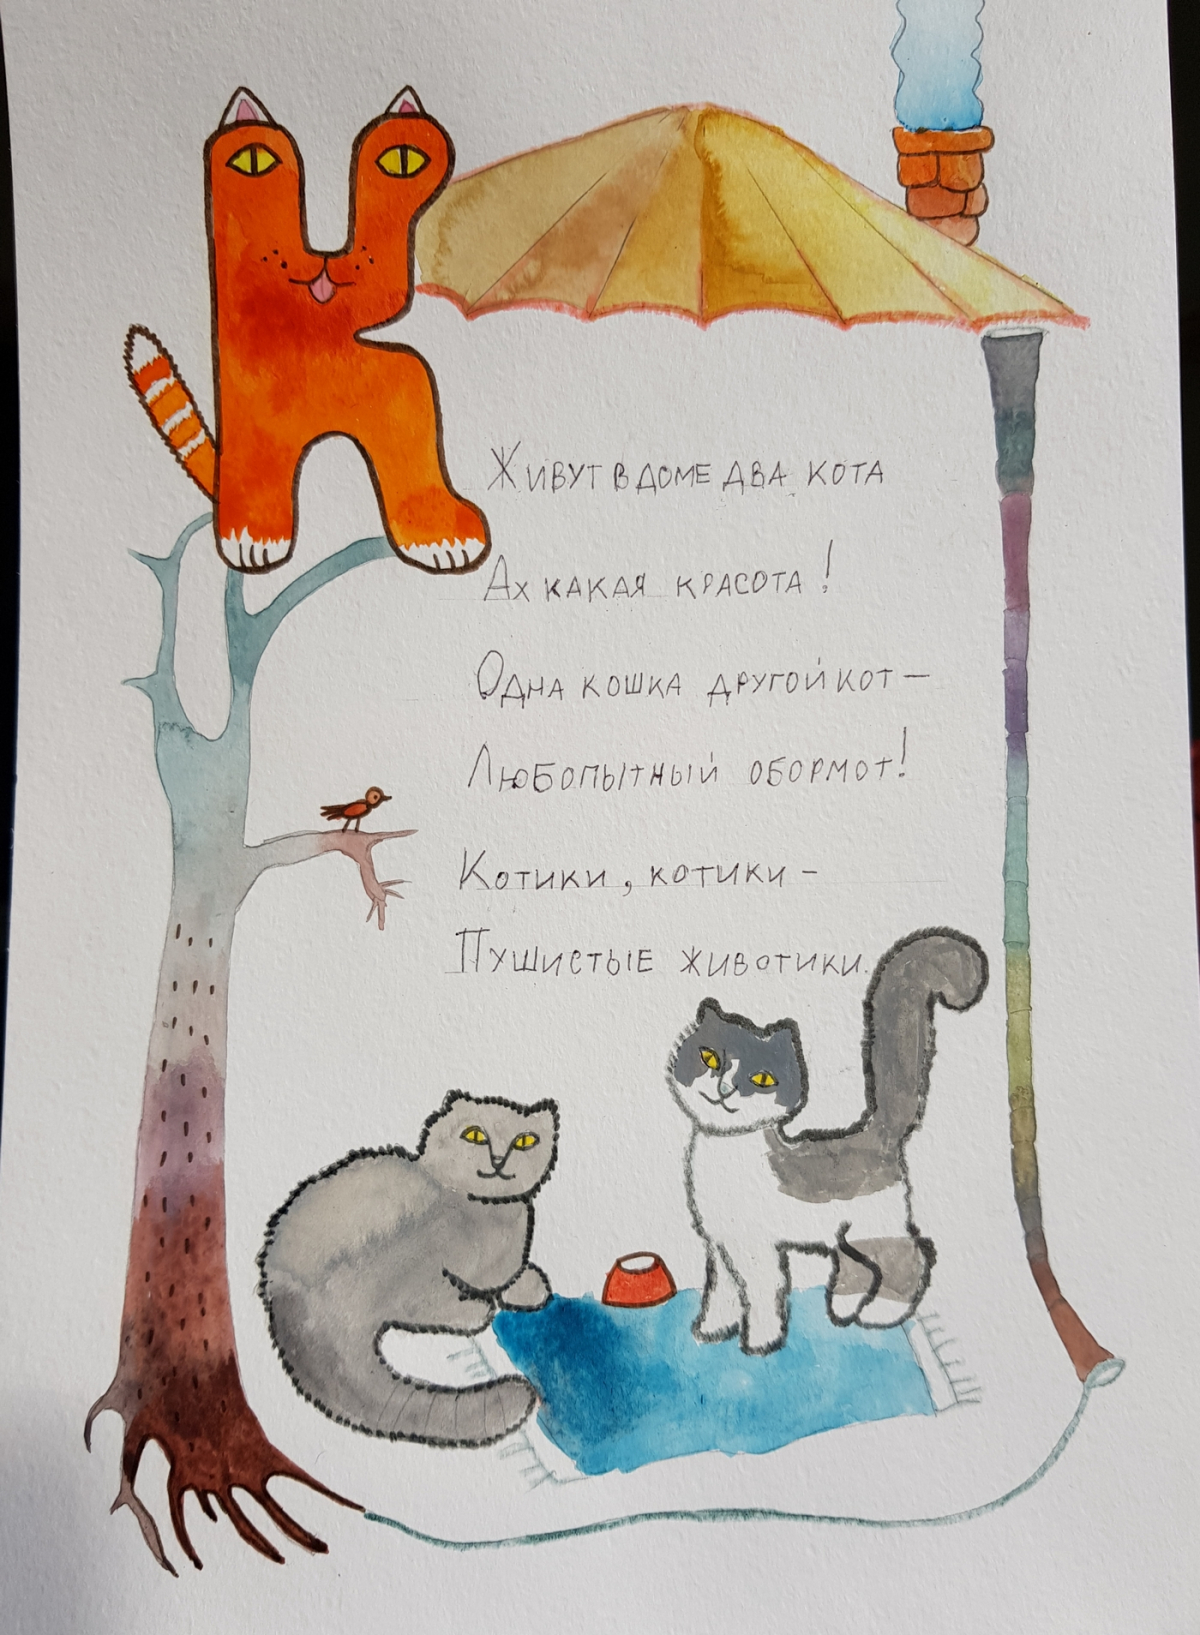 К
Живут в доме два кота
Ах какая красота!
Одна кошка другой кот –
Любопытный обормот!
Котики, котики –
Пушистые животики.